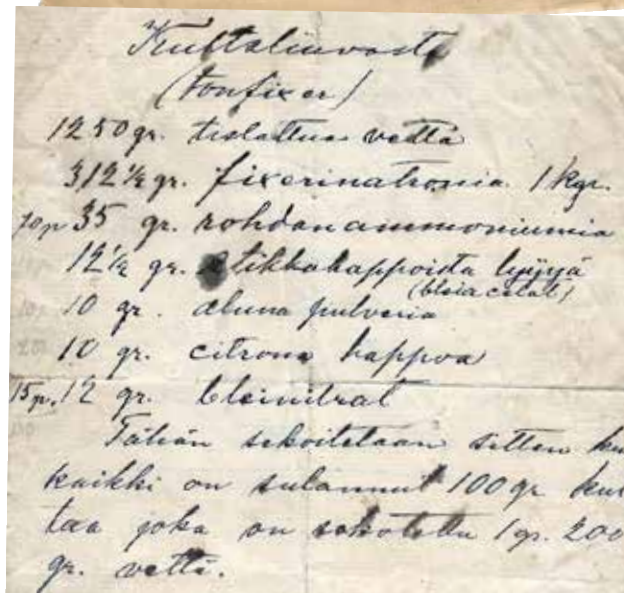 (tonfixer)
1250 gr. tislattua vettä
312½ gr. fixerinatronia. 1 kgr.
70p 35 gr. rohdanammoniumia
12½ gr. etikkahappoista lyijyä
(bleiacetat)
10 gr. aluna pulveria
10 gr. citrona happoa
15p. 12 gr. bleinitrat
Tähän sekoitetaan sitten ku
kaikki on sulannut 100 gr kul
taa joka on sekotettu 1 gr. 200
gr. vettä.